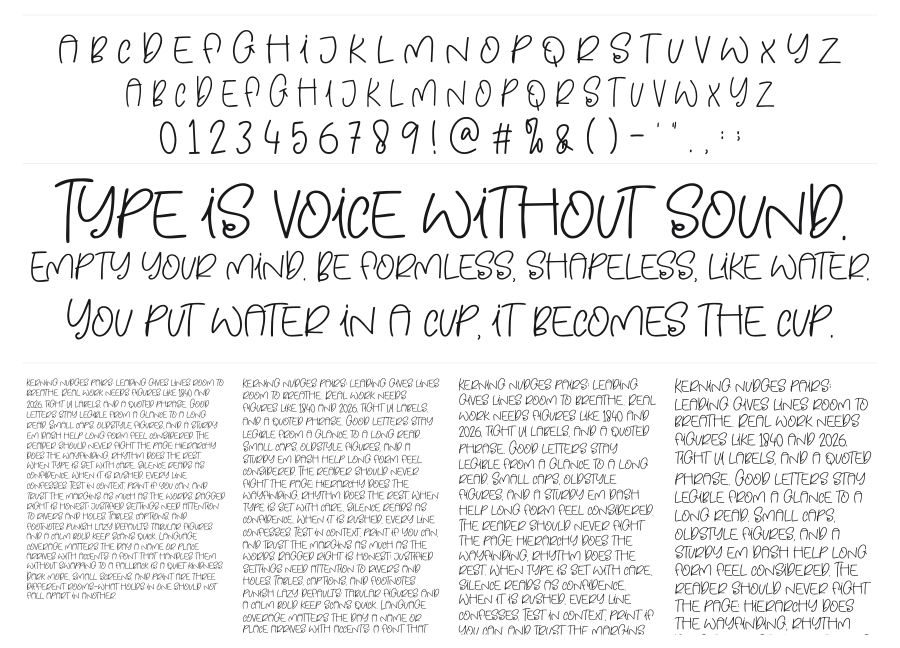 A B C D E F G H I J K L M N O P Q R S T U V W X Y Z
A B C D E F G H I J K L M N O P Q R S T U V W X Y Z
0 1 2 3 4 5 6 7 8 9 ! @ # % & ( ) - ' " . , : ;
TYPE IS VOICE WITHOUT SOUND.
EMPTY YOUR MIND. BE FORMLESS, SHAPELESS, LIKE WATER.
YOU PUT WATER IN A CUP, IT BECOMES THE CUP.
KERNING NUDGES PAIRS; LEADING GIVES LINES ROOM TO
BREATHE. REAL WORK NEEDS FIGURES LIKE 1840 AND
2026, TIGHT UI LABELS, AND A QUOTED PHRASE. GOOD
LETTERS STAY LEGIBLE FROM A GLANCE TO A LONG
READ. SMALL CAPS, OLDSTYLE FIGURES, AND A STURDY
EM DASH HELP LONG FORM FEEL CONSIDERED. THE
READER SHOULD NEVER FIGHT THE PAGE: HIERARCHY
DOES THE WAYFINDING, RHYTHM DOES THE REST.
WHEN TYPE IS SET WITH CARE, SILENCE READS AS
CONFIDENCE. WHEN IT IS RUSHED, EVERY LINE
CONFESSES. TEST IN CONTEXT, PRINT IF YOU CAN, AND
TRUST THE MARGINS AS MUCH AS THE WORDS. RAGGED
RIGHT IS HONEST; JUSTIFIED SETTINGS NEED ATTENTION
TO RIVERS AND HOLES. TABLES, CAPTIONS, AND
FOOTNOTES PUNISH LAZY DEFAULTS. TABULAR FIGURES
AND A CALM BOLD KEEP SCANS QUICK. LANGUAGE
COVERAGE MATTERS THE DAY A NAME OR PLACE
ARRIVES WITH ACCENTS: A FONT THAT HANDLES THEM
WITHOUT SWAPPING TO A FALLBACK IS A QUIET KINDNESS.
DARK MODE, SMALL SCREENS, AND PRINT ARE THREE
DIFFERENT ROOMS—WHAT HOLDS IN ONE SHOULD NOT
FALL APART IN ANOTHER.
KERNING NUDGES PAIRS; LEADING GIVES LINES
ROOM TO BREATHE. REAL WORK NEEDS
FIGURES LIKE 1840 AND 2026, TIGHT UI LABELS,
AND A QUOTED PHRASE. GOOD LETTERS STAY
LEGIBLE FROM A GLANCE TO A LONG READ.
SMALL CAPS, OLDSTYLE FIGURES, AND A
STURDY EM DASH HELP LONG FORM FEEL
CONSIDERED. THE READER SHOULD NEVER
FIGHT THE PAGE: HIERARCHY DOES THE
WAYFINDING, RHYTHM DOES THE REST. WHEN
TYPE IS SET WITH CARE, SILENCE READS AS
CONFIDENCE. WHEN IT IS RUSHED, EVERY LINE
CONFESSES. TEST IN CONTEXT, PRINT IF YOU CAN,
AND TRUST THE MARGINS AS MUCH AS THE
WORDS. RAGGED RIGHT IS HONEST; JUSTIFIED
SETTINGS NEED ATTENTION TO RIVERS AND
HOLES. TABLES, CAPTIONS, AND FOOTNOTES
PUNISH LAZY DEFAULTS. TABULAR FIGURES AND
A CALM BOLD KEEP SCANS QUICK. LANGUAGE
COVERAGE MATTERS THE DAY A NAME OR
PLACE ARRIVES WITH ACCENTS: A FONT THAT
KERNING NUDGES PAIRS; LEADING
GIVES LINES ROOM TO BREATHE. REAL
WORK NEEDS FIGURES LIKE 1840 AND
2026, TIGHT UI LABELS, AND A QUOTED
PHRASE. GOOD LETTERS STAY
LEGIBLE FROM A GLANCE TO A LONG
READ. SMALL CAPS, OLDSTYLE
FIGURES, AND A STURDY EM DASH
HELP LONG FORM FEEL CONSIDERED.
THE READER SHOULD NEVER FIGHT
THE PAGE: HIERARCHY DOES THE
WAYFINDING, RHYTHM DOES THE
REST. WHEN TYPE IS SET WITH CARE,
SILENCE READS AS CONFIDENCE.
WHEN IT IS RUSHED, EVERY LINE
CONFESSES. TEST IN CONTEXT, PRINT IF
YOU CAN, AND TRUST THE MARGINS
KERNING NUDGES PAIRS;
LEADING GIVES LINES ROOM TO
BREATHE. REAL WORK NEEDS
FIGURES LIKE 1840 AND 2026,
TIGHT UI LABELS, AND A QUOTED
PHRASE. GOOD LETTERS STAY
LEGIBLE FROM A GLANCE TO A
LONG READ. SMALL CAPS,
OLDSTYLE FIGURES, AND A
STURDY EM DASH HELP LONG
FORM FEEL CONSIDERED. THE
READER SHOULD NEVER FIGHT
THE PAGE: HIERARCHY DOES
THE WAYFINDING, RHYTHM